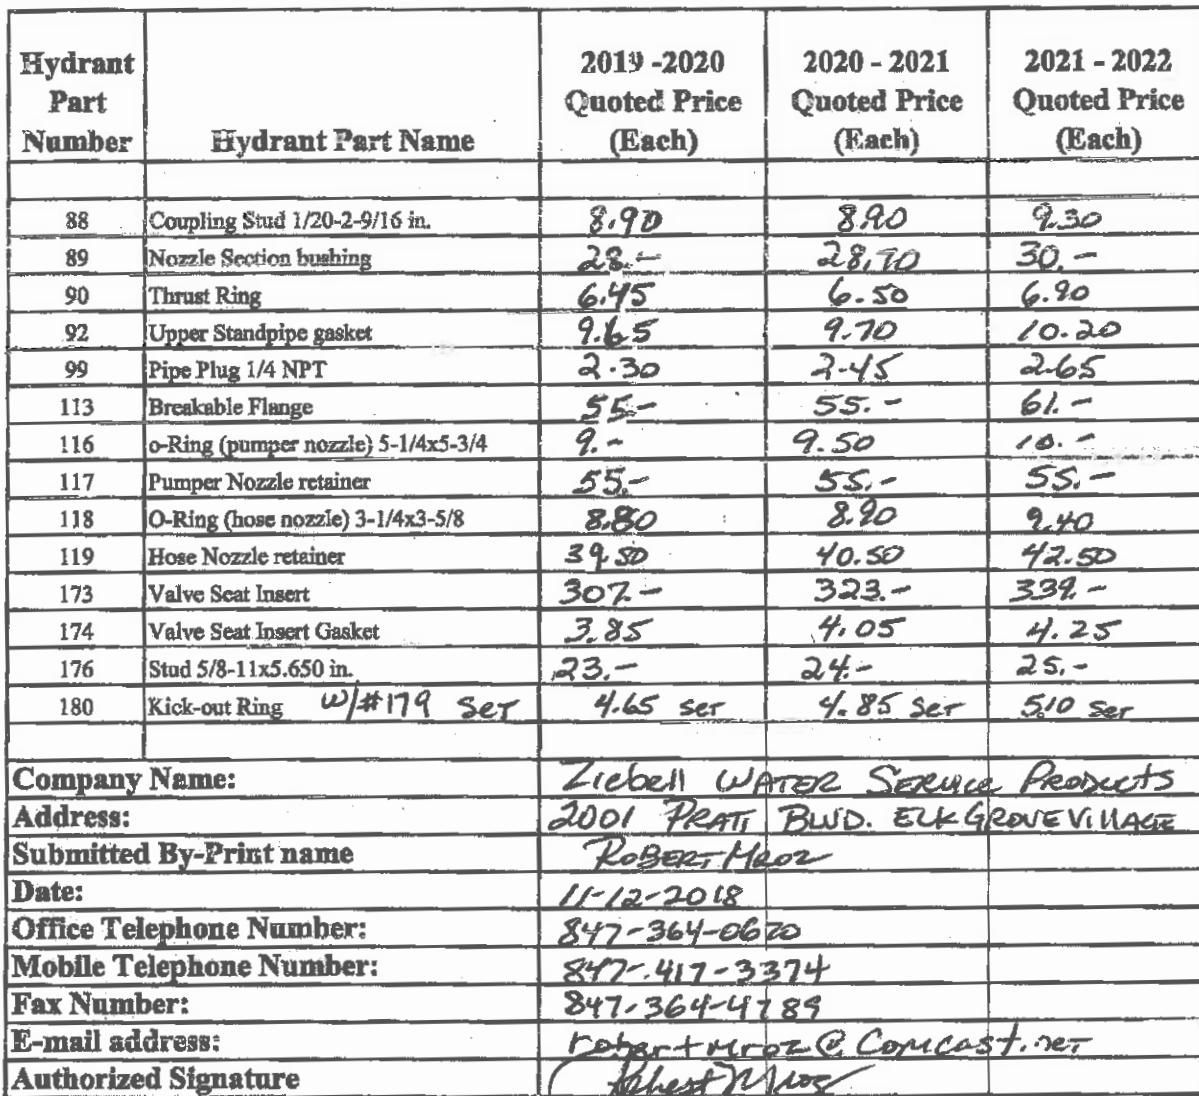 Hydrant Part Number Hydrant Part Name 2019 -2020 Quoted Price (Each) 2020 - 2021 Quoted Price (Each) 2021 - 2022 Quoted Price (Each)
88 Coupling Stud 1/20-2-9/16 in. 8.90 8.90 9.30
89 Nozzle Section bushing 28.- 28.70 30.-
90 Thrust Ring 6.45 6.50 6.90
92 Upper Standpipe gasket 9.65 9.70 10.20
99 Pipe Plug 1/4 NPT 2.30 2.45 2.65
113 Breakable Flange 55.- 55.- 61.-
116 o-Ring (pumper nozzle) 5-1/4x5-3/4 9.- 9.50 10.-
117 Pumper Nozzle retainer 55.- 55.- 55.-
118 O-Ring (hose nozzle) 3-1/4x3-5/8 8.80 8.90 9.40
119 Hose Nozzle retainer 39.50 40.50 42.50
173 Valve Seat Insert 307.- 323.- 339.-
174 Valve Seat Insert Gasket 3.85 4.05 4.25
176 Stud 5/8-11x5.650 in. 23.- 24.- 25.-
180 Kick-out Ring w/#179 Set 4.65 Set 4.85 Set 5.10 Set
Company Name: Ziebell Water Service Products
Address: 2001 Pratt Blvd. Elk Grove Village
Submitted By-Print name Robert Mroz
Date: 11-12-2018
Office Telephone Number: 847-364-0670
Mobile Telephone Number: 847-417-3374
Fax Number: 847-364-4789
E-mail address: robertmroz@comcast.net
Authorized Signature Robert Mroz